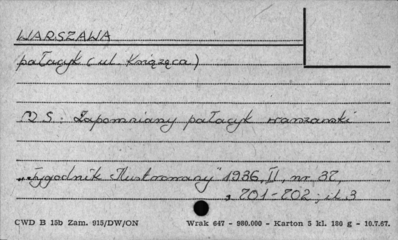 WARSZAWA
pałacyk (ul. Książęca)
DS: Zapomniany pałacyk warszawski
"Tygodnik Ilustrowany" 1936, II, nr. 37,
s. 701-702; il. 3
CWD B 15b Zam. 915/DW/ON Wrak 647 - 980.000 - Karton 5 kl. 180 g - 10.7.67.